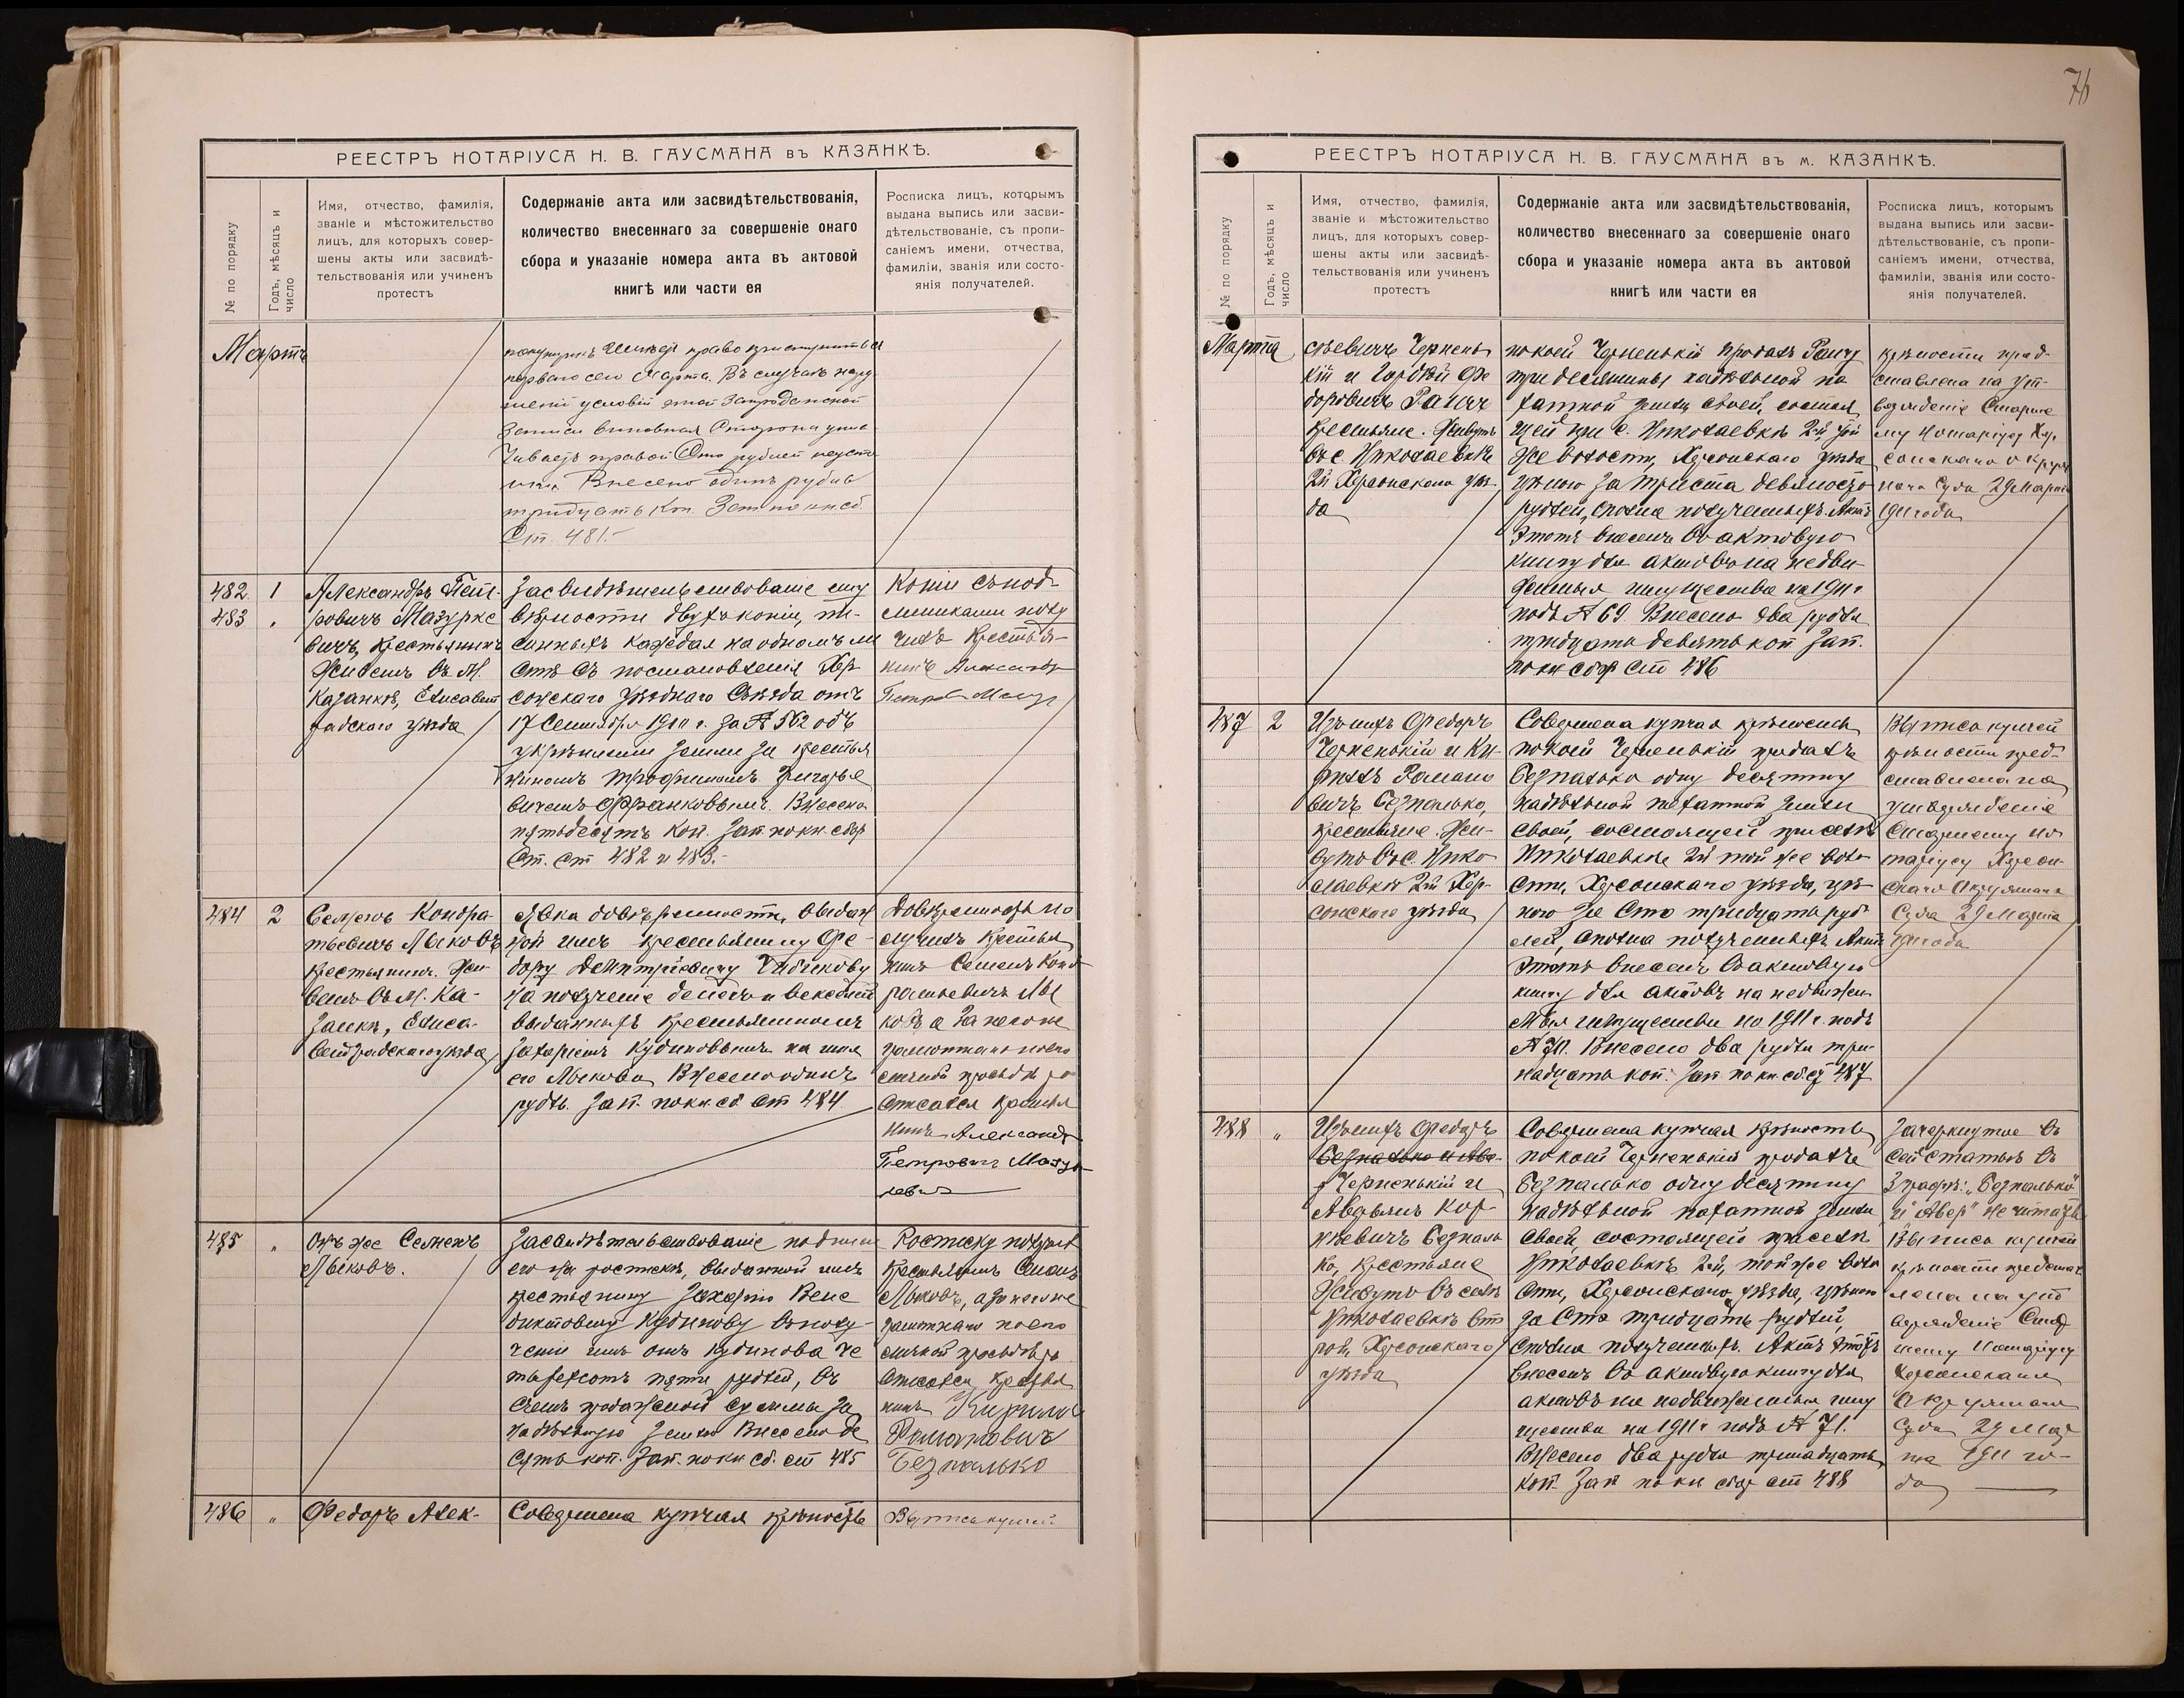 76
РЕЕСТРЪ НОТАРІУСА Н. В. ГАУСМАНА въ КАЗАНКѢ.
№ по порядку
Годъ, мѣсяцъ и число
Имя, отчество, фамилія,
званіе и мѣстожительство
лицъ, для которыхъ совер-
шены акты или засвидѣ-
тельствованія или учиненъ
протестъ
Содержаніе акта или засвидѣтельствованія,
количество внесеннаго за совершеніе онаго
сбора и указаніе номера акта въ актовой
книгѣ или части ея
Росписка лицъ, которымъ
выдана выпись или засви-
дѣтельствованіе, съ пропи-
саніемъ имени, отчества,
фамиліи, званія или состо-
янія получателей.
Мартъ
право приступить съ
перваго сего Марта. Въ случаѣ нару
шенія условій этой Запроданской
Записи виновная Сторона упла
чиваетъ правой Сто рублей неусто
йки Внесено одинъ рубль
тридцать Коп. Зап по кн сб
Ст. 481.-
482 1
483 "
Александръ Пет-
ровичъ Мазурке
вичъ, крестьянинъ
Живетъ въ М.
Казанкѣ, Елисавет
градскаго уѣзда
Засвидѣтельствованіе ему
вѣрности двухъ копій, пи-
санныхъ каждая на одномъ ли
стѣ съ постановленія Хер
сонскаго Уѣзднаго Съѣзда отъ
17 Сентября 1910 г. за № 562 объ
укрѣпленіи земли за крестья
ниномъ Трофимомъ Григорье
вичемъ Франковымъ. Внесено
пятьдесятъ Коп. Зап. по кн. сбор
Ст. Ст 482 и 483.-
Копіи съ под
линниками полу
чилъ Крестья
нинъ Александръ
Петров Мазур
484 2
Семенъ Кондра-
тьевичъ Лысковъ
Крестьянинъ. Жи
ветъ въ М. Ка-
занкѣ, Елиса-
ветградскаго уѣзда
Явка довѣренности, выдан
ной имъ крестьянину Фе-
дору Дмитріевичу Чибикову
на полученіе денегъ и векселей
выданныхъ крестьяниномъ
Захаріемъ Кудиновымъ на имя
его Лыскова Внесено одинъ
рубль. Зап. по кн. сб ст 484
Довѣренность по
лучилъ Крестья
нинъ Семенъ Конд
ратьевичъ Лыс
ковъ а за негоне
грамотнаго по его
личной просьбѣ ро
списался крестья
нинъ Александръ
Петровичъ Мазур
кевичъ
485 "
Онъ же Семенъ
Лысковъ.
Засвидѣтельствованіе подписи
его на роспискѣ, выданной имъ
крестьянину Захарію Вене
диктовичу Кудинову въ полу-
ченіи имъ отъ Кудинова че
тырехсотъ пяти рублей, въ
счетъ продажной суммы за
надѣльную землю Внесено де
сять коп. Зап. по кн сб. ст 485
Росписку получилъ
Крестьянинъ Семенъ
Лысковъ, а за негоне
грамотнаго по его
личной просьбѣ ро
списался крестья
нинъ Кирилъ
Романовичъ
Безпалько
486 "
Федоръ Алек-
Совершена купчая крѣпость
Выпись купчей
РЕЕСТРЪ НОТАРІУСА Н. В. ГАУСМАНА въ м. КАЗАНКѢ.
№ по порядку
Годъ, мѣсяцъ и число
Имя, отчество, фамилія,
званіе и мѣстожительство
лицъ, для которыхъ совер-
шены акты или засвидѣ-
тельствованія или учиненъ
протестъ
Содержаніе акта или засвидѣтельствованія,
количество внесеннаго за совершеніе онаго
сбора и указаніе номера акта въ актовой
книгѣ или части ея
Росписка лицъ, которымъ
выдана выпись или засви-
дѣтельствованіе, съ пропи-
саніемъ имени, отчества,
фамиліи, званія или состо-
янія получателей.
Марта
сѣевичъ Чернень
кій и Гордѣй Фе
доровичъ Рапач
Крестьяне. Живутъ
въ с. Николаевкѣ
2й Херсонскаго уѣз-
да
по коей Черненькій продалъ Рапач
три десятины надѣльной па
хатной земли своей, состоя
щей при с. Николаевкѣ 2й, той
же волости, Херсонскаго уѣзда
цѣною за триста девяносто
рублей, сполна полученныхъ. Актъ
этотъ внесенъ въ актовую
книгу для актовъ на недви
жимыя имущества на 1911 г
подъ № 69. Внесено два рубля
тридцать девять коп Зап.
по кн сбор ст 486
крѣпости пред-
ставлена на ут-
вержденіе Старше
му Нотаріусу Хер
сонскаго Окруж
наго Суда 29 Марта
1911 года
487 2
Изъ нихъ Федоръ
Черненькій и Ки-
риллъ Романо
вичъ Безпалько,
крестьяне. Жи-
вутъ въ с. Нико
лаевкѣ 2й Хер-
сонскаго уѣзда
Совершена купчая крѣпость
по коей Черненькій продалъ
Безпалько одну десятину
надѣльной пахатной земли
своей, состоящей при селѣ
Николаевкѣ 2й той же воло
сти, Херсонскаго уѣзда, цѣ-
ною за Сто тридцать руб
лей, сполна полученныхъ Актъ
этотъ внесенъ въ актовую
книгу для актовъ на недвижи
мыя имущества на 1911 г. подъ
№ 70. Внесено два рубля три-
надцать коп. Зап по кн сб. ст 487
Выпись купчей
крѣпости пред-
ставлена на
утвержденіе
Старшему Но
таріусу Херсон
скаго Окружнаго
Суда 29 Марта
1911 года
488 "
Изъ нихъ Федоръ
Безпалько и Аве-
Черненькій и
Аверьянъ Кор-
нѣевичъ Безпаль
ко, крестьяне
Живутъ въ селѣ
Николаевкѣ Вто
рой, Херсонскаго
уѣзда
Совершена купчая крѣпость
по коей Черненькій продалъ
Безпалько одну десятину
надѣльной пахатной земли
своей, состоящей при селѣ
Николаевкѣ 2й, той же воло
сти, Херсонскаго уѣзда, цѣною
за Сто тридцать рублей,
сполна полученныхъ. Актъ этотъ
внесенъ въ актовую книгу для
актовъ на недвижимыя иму
щества на 1911 г подъ № 71.
Внесено два рубля тринадцать
коп. Зап по кн сбор ст 488
Зачеркнутое въ
сей статьѣ въ
3 графѣ: „Безпалько"
и „Авер" не читать
Выпись купчей
крѣпости представ
лена на утв
ержденіе Стар
шему Нотаріусу
Херсонскаго
Окружнаго
Суда 29 Мар
та 1911 го-
да